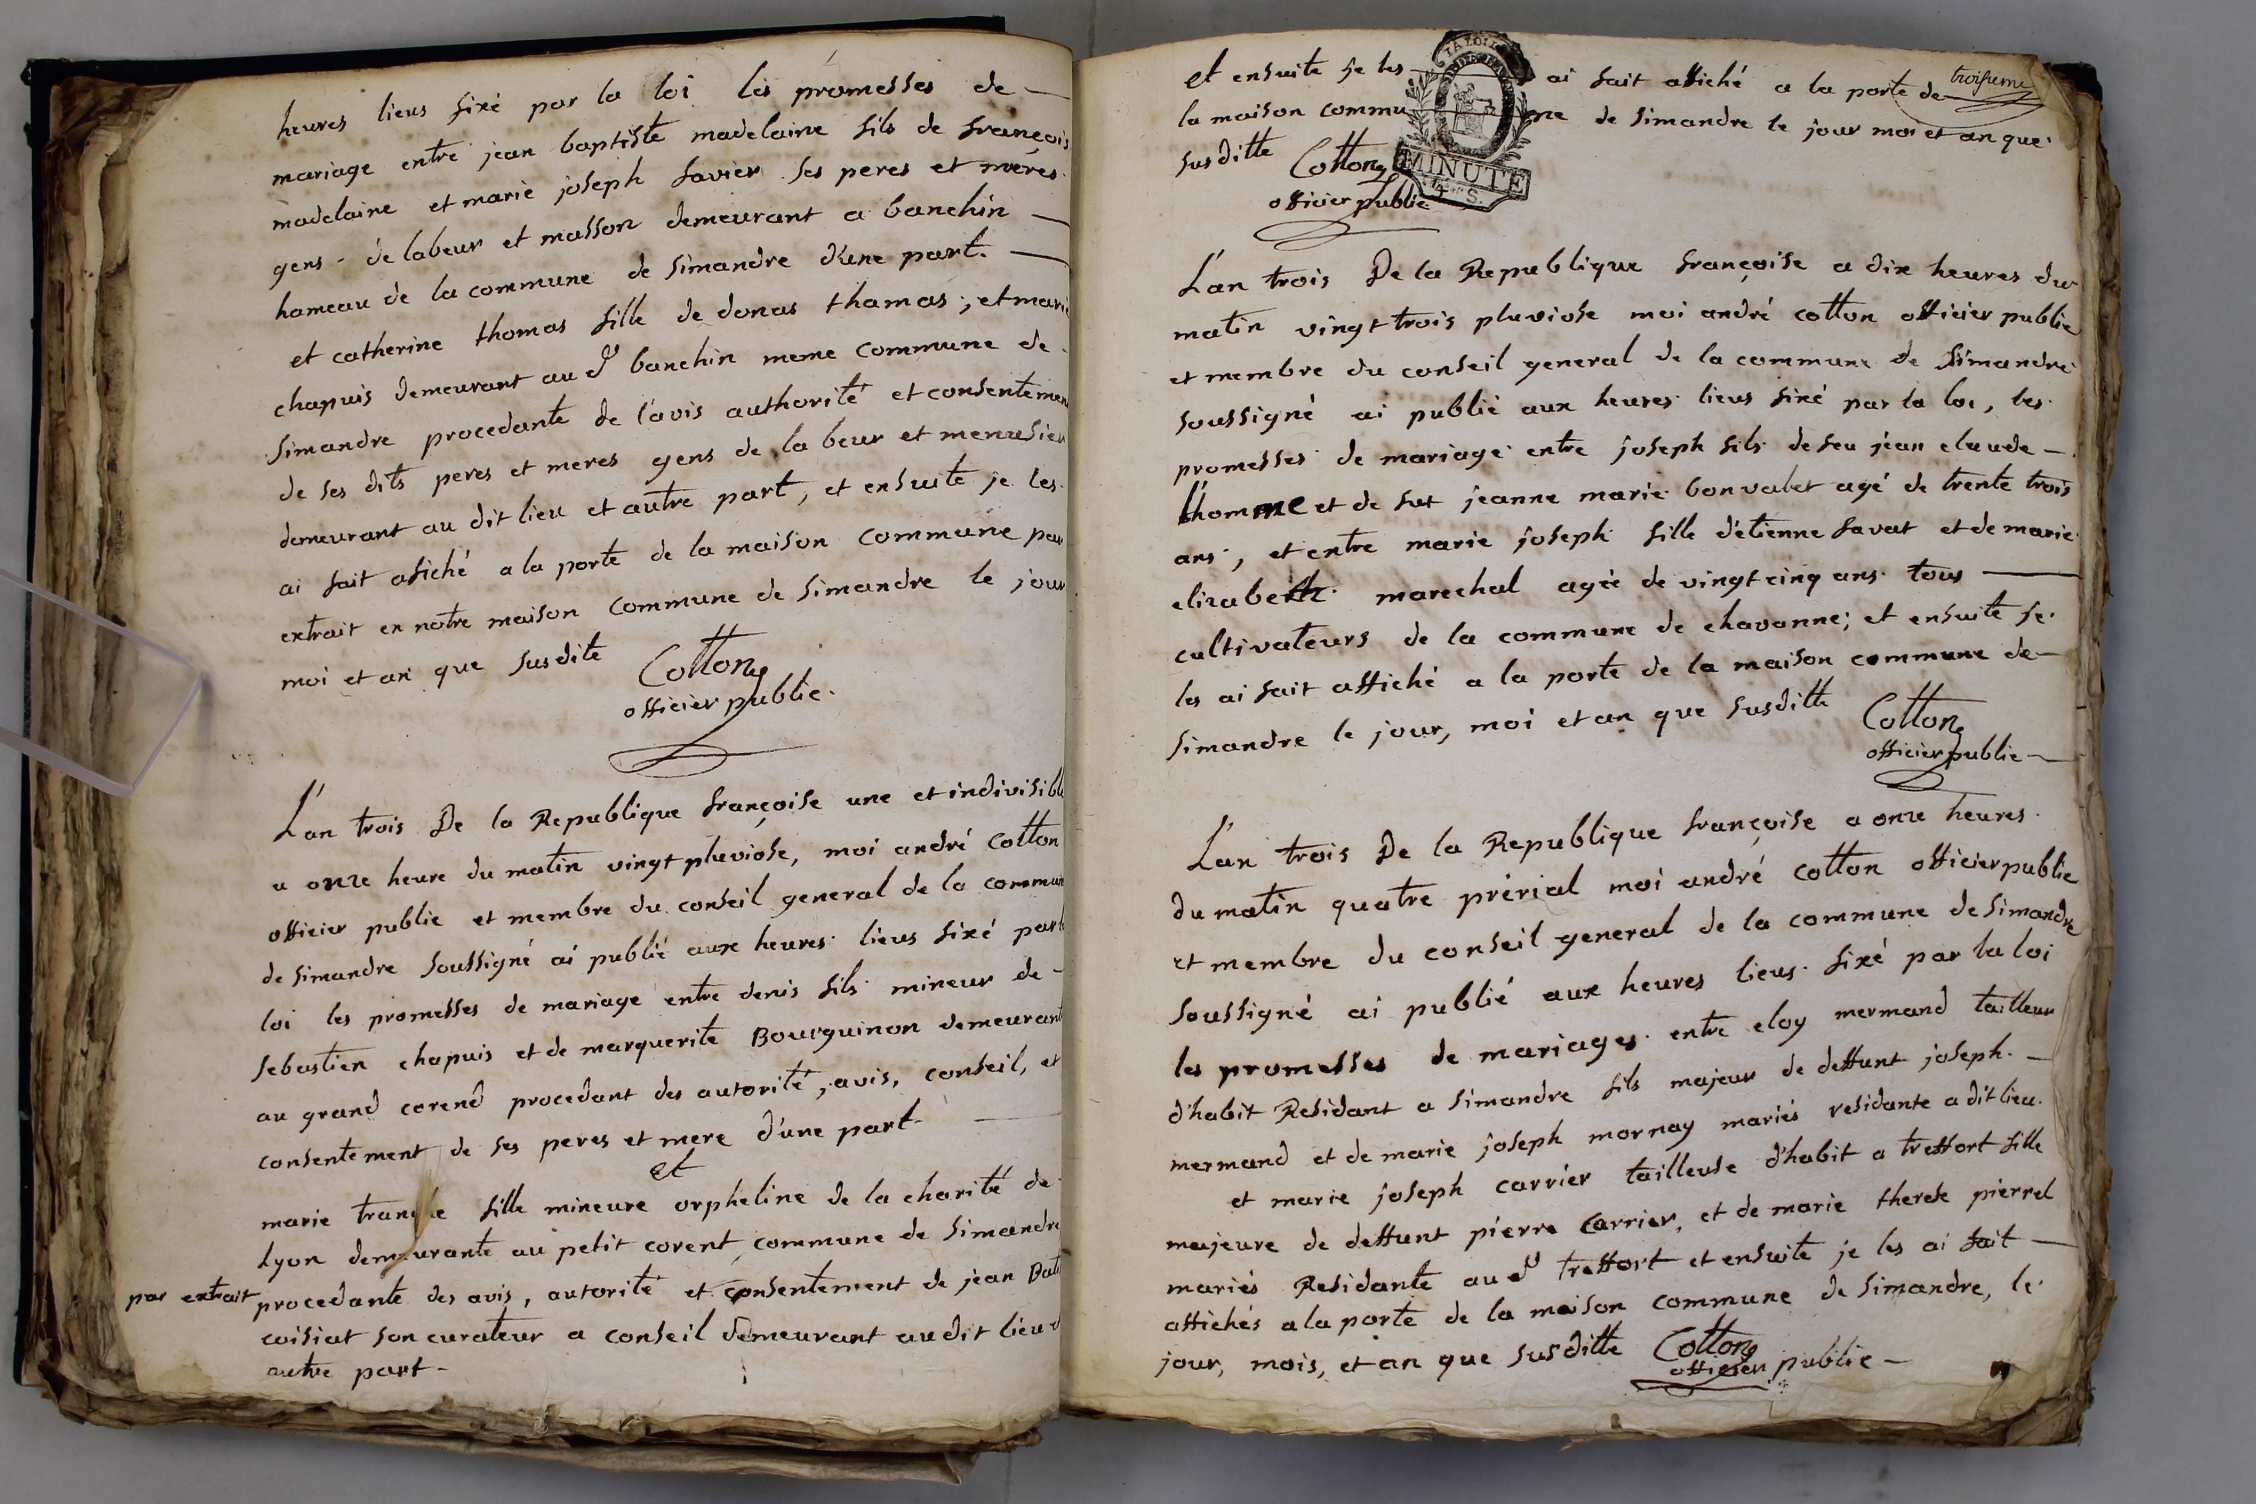 heures lieus fixé par la loi les promesses de
mariage entre jean baptiste madelaine fils de françois
madelaine et marie joseph favier ses peres et meres
gens de labeur et masson demeurant a banchin
hameau de la commune de simandre d'une part.
et catherine thomas fille de donas thamas, et marie
chapuis demeurant aud banchin meme commune de
simandre procedante de l'avis authorité et consentemen
de ses dits peres et meres gens de la beur et menusier
demeurant au dit lieu et autre part, et ensuite je les
ai fait afiché a la porte de la maison commune par
extrait en notre maison commune de simandre le jour
moi et an que susdite Cotton
officier public.
L'an trois De la Republique françoise une et indivisible
a onze heure du matin vingt pluviose, moi andré Cotton
officier public et membre du conseil general de la commun
de simandre soussigné ai publié aux heures lieus fixé par la
loi les promesses de mariage entre denis fils mineur de
sebastien chapuis et de marguerite Bourguinon demeurant
au grand corend procedant des autorité, avis, conseil, et
consentement de ses peres et mere d'une part.
et
marie tranche fille mineure orpheline de la charité de
Lyon demeurante au petit corent commune de simandre
par extrait procedante des avis, autorité et consentement de jean Bati
coisiat son curateur a conseil demeurant au dit lieu d
autre part.
troisieme
et ensuite je les ai fait affiché a la porte de
la maison commune de simandre le jour moi et an que
susditte Cotton
officier public
LA LOI
MINUTE
4 S.
L'an trois De la Republique françoise a dix heures du
matin vingt trois pluviose moi andré cotton officier public
et membre du conseil general de la commune de simandre
soussigné ai publié aux heures lieus fixé par la loi, les
promesses de mariage entre joseph fils de feu jean claude
thomme et de fut jeanne marie bonvalet agé de trente trois
ans, et entre marie joseph fille d'étienne favat et de marie
elizabeth marechal agée de vingt cinq ans tous
cultivateurs de la commune de chavanne; et ensuite je
les ai fait affiché a la porte de la maison commune de
simandre le jour, moi et an que susditte Cotton
officier public
L'an trois De la Republique françoise a onze heures
du matin quatre prérial moi andré cotton officier public
et membre du conseil general de la commune de simandre
soussigné ai publié aux heures lieus fixé par la loi
les promesses de mariages entre eloy mermand tailleur
d'habit Residant a simandre fils majeur de deffunt joseph
mermand et de marie joseph mornay mariés residante a dit lieu
et marie joseph carrier tailleuse d'habit a treffort fille
majeure de deffunt pierre carrier, et de marie therese pierrel
mariés Residante aud treffort et ensuite je les ai fait
affichés a la porte de la maison commune de simandre, le
jour, mois, et an que susditte Cotton
officier public